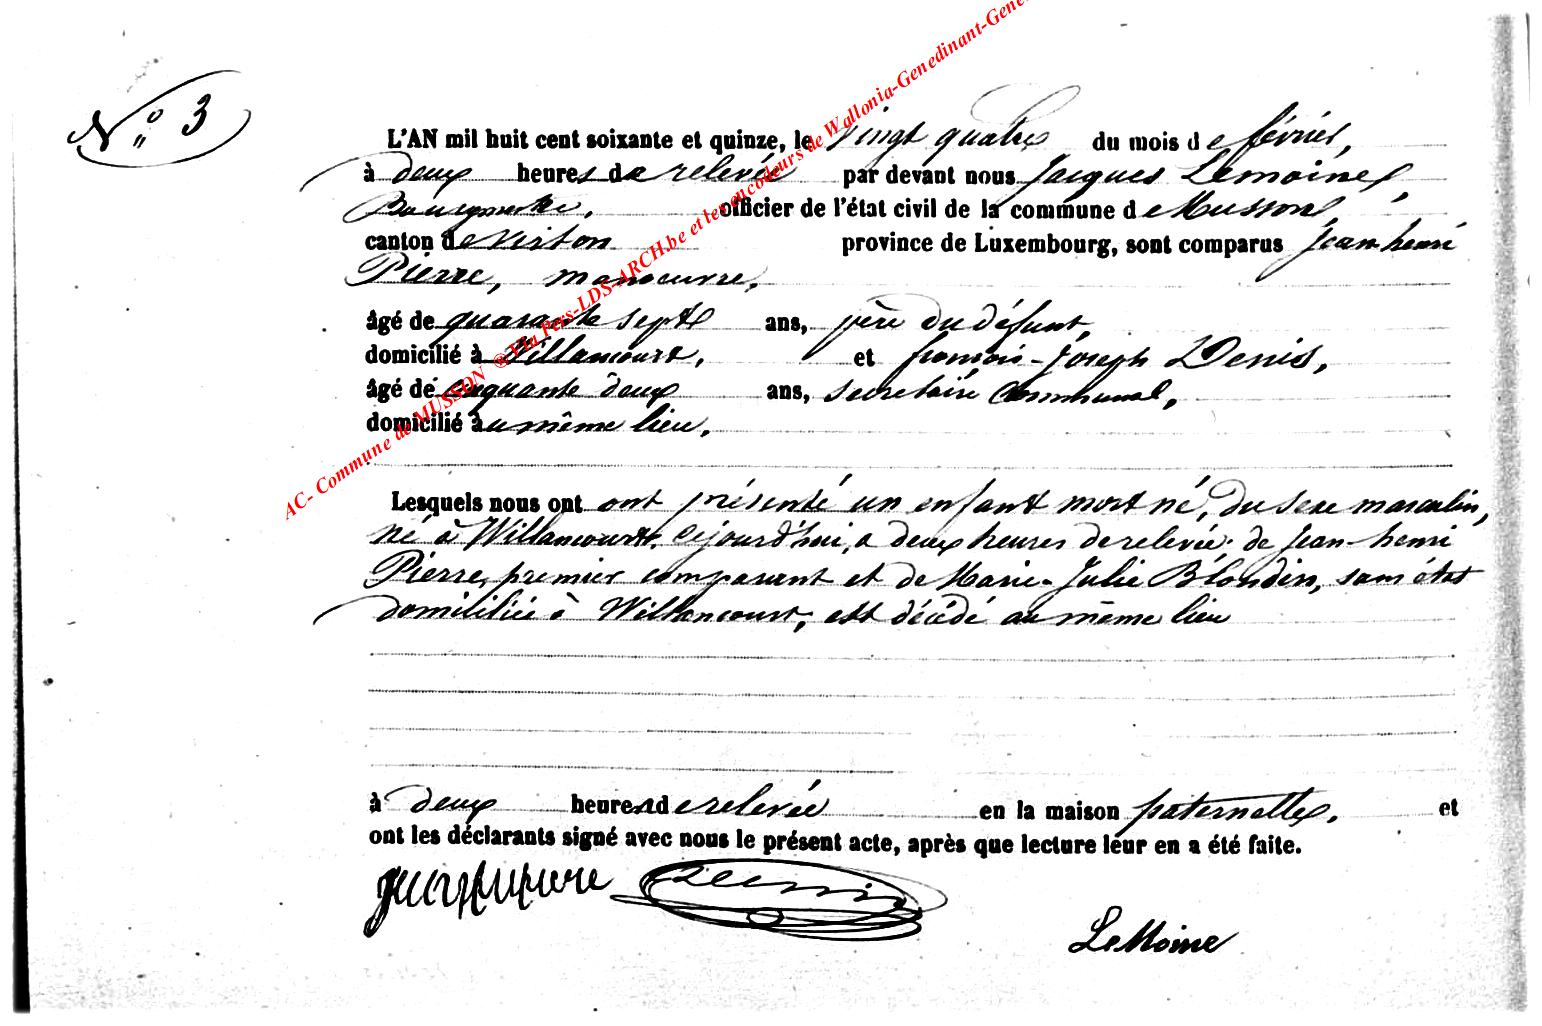 N° 3
L'AN mil huit cent soixante et quinze, le vingt quatre du mois de février,
à deux heures de relevée par devant nous Jacques Lemoine,
Bourgmestre, officier de l'état civil de la commune de Musson,
canton de Virton province de Luxembourg, sont comparus Jean-henri
Pierre, manoeuvre,
âgé de quarante sept ans, père du défunt,
domicilié à Willancourt, et françois-Joseph Denis,
âgé de cinquante deux ans, secretaire communal,
domicilié au même lieu,
Lesquels nous ont ont présenté un enfant mort né, du sexe masculin,
né à Willancourt, cejourd'hui, a deux heures de relevée, de Jean-henri
Pierre, premier comparant et de Marie-Julie Blondin, sans état
domiciliée à Willancourt, est décédé au même lieu
à deux heures de relevée en la maison paternelle, et
ont les déclarants signé avec nous le présent acte, après que lecture leur en a été faite.
Denis
LeMoine
AC- Commune de MUSSON @Via Pers-LDS-ARCH.be et les encodeurs de Wallonia-Genedinant-Gene